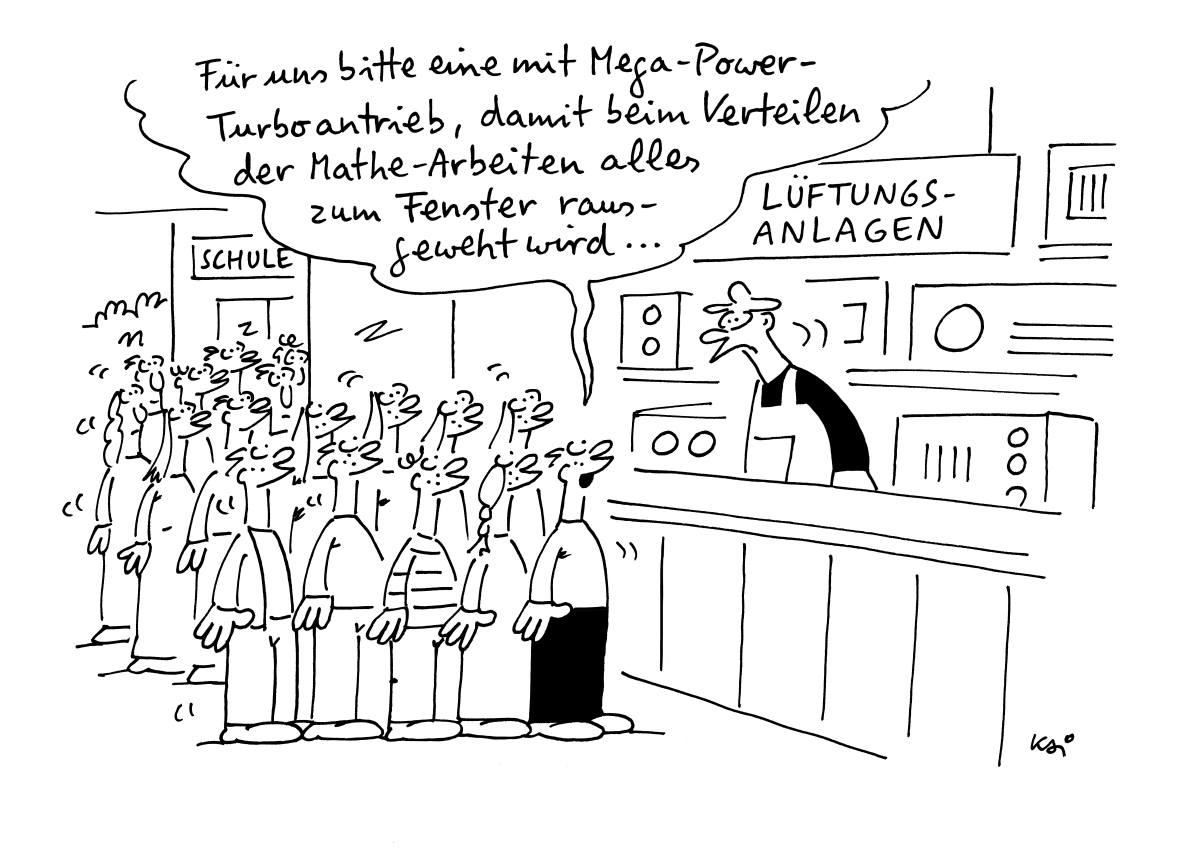 Für uns bitte eine mit Mega-Power-
Turboantrieb, damit beim Verteilen
der Mathe-Arbeiten alles
zum Fenster raus-
geweht wird ...
LÜFTUNGS-
ANLAGEN
SCHULE